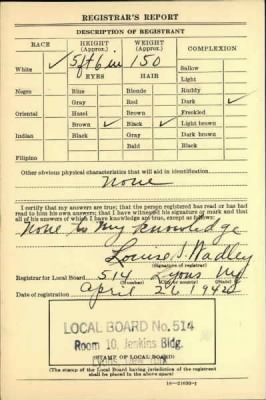 REGISTRAR'S REPORT
DESCRIPTION OF REGISTRANT
RACE HEIGHT (Approx.) WEIGHT (Approx.) COMPLEXION
White ✓ 5 ft 6 in 150 Sallow
EYES HAIR Light
Negro Blue Blonde Ruddy
Gray Red Dark ✓
Oriental Hazel Brown Freckled
Brown ✓ Black ✓ Light brown
Indian Black Gray Dark brown
Bald Black
Filipino
Other obvious physical characteristics that will aid in identification
None
I certify that my answers are true; that the person registered has read or has had
read to him his own answers; that I have witnessed his signature or mark and that
all of his answers of which I have knowledge are true, except as follows:
None to my knowledge
Louise J. Wadley
(Signature of registrar)
Registrar for Local Board 514 Lyons NY
(Number) (City or county) (State)
Date of registration April 26 1942
LOCAL BOARD No. 514
Room 10, Jenkins Bldg.
(STAMP OF LOCAL BOARD)
(The stamp of the Local Board having jurisdiction of the registrant
shall be placed in the above space)
16—21630-1